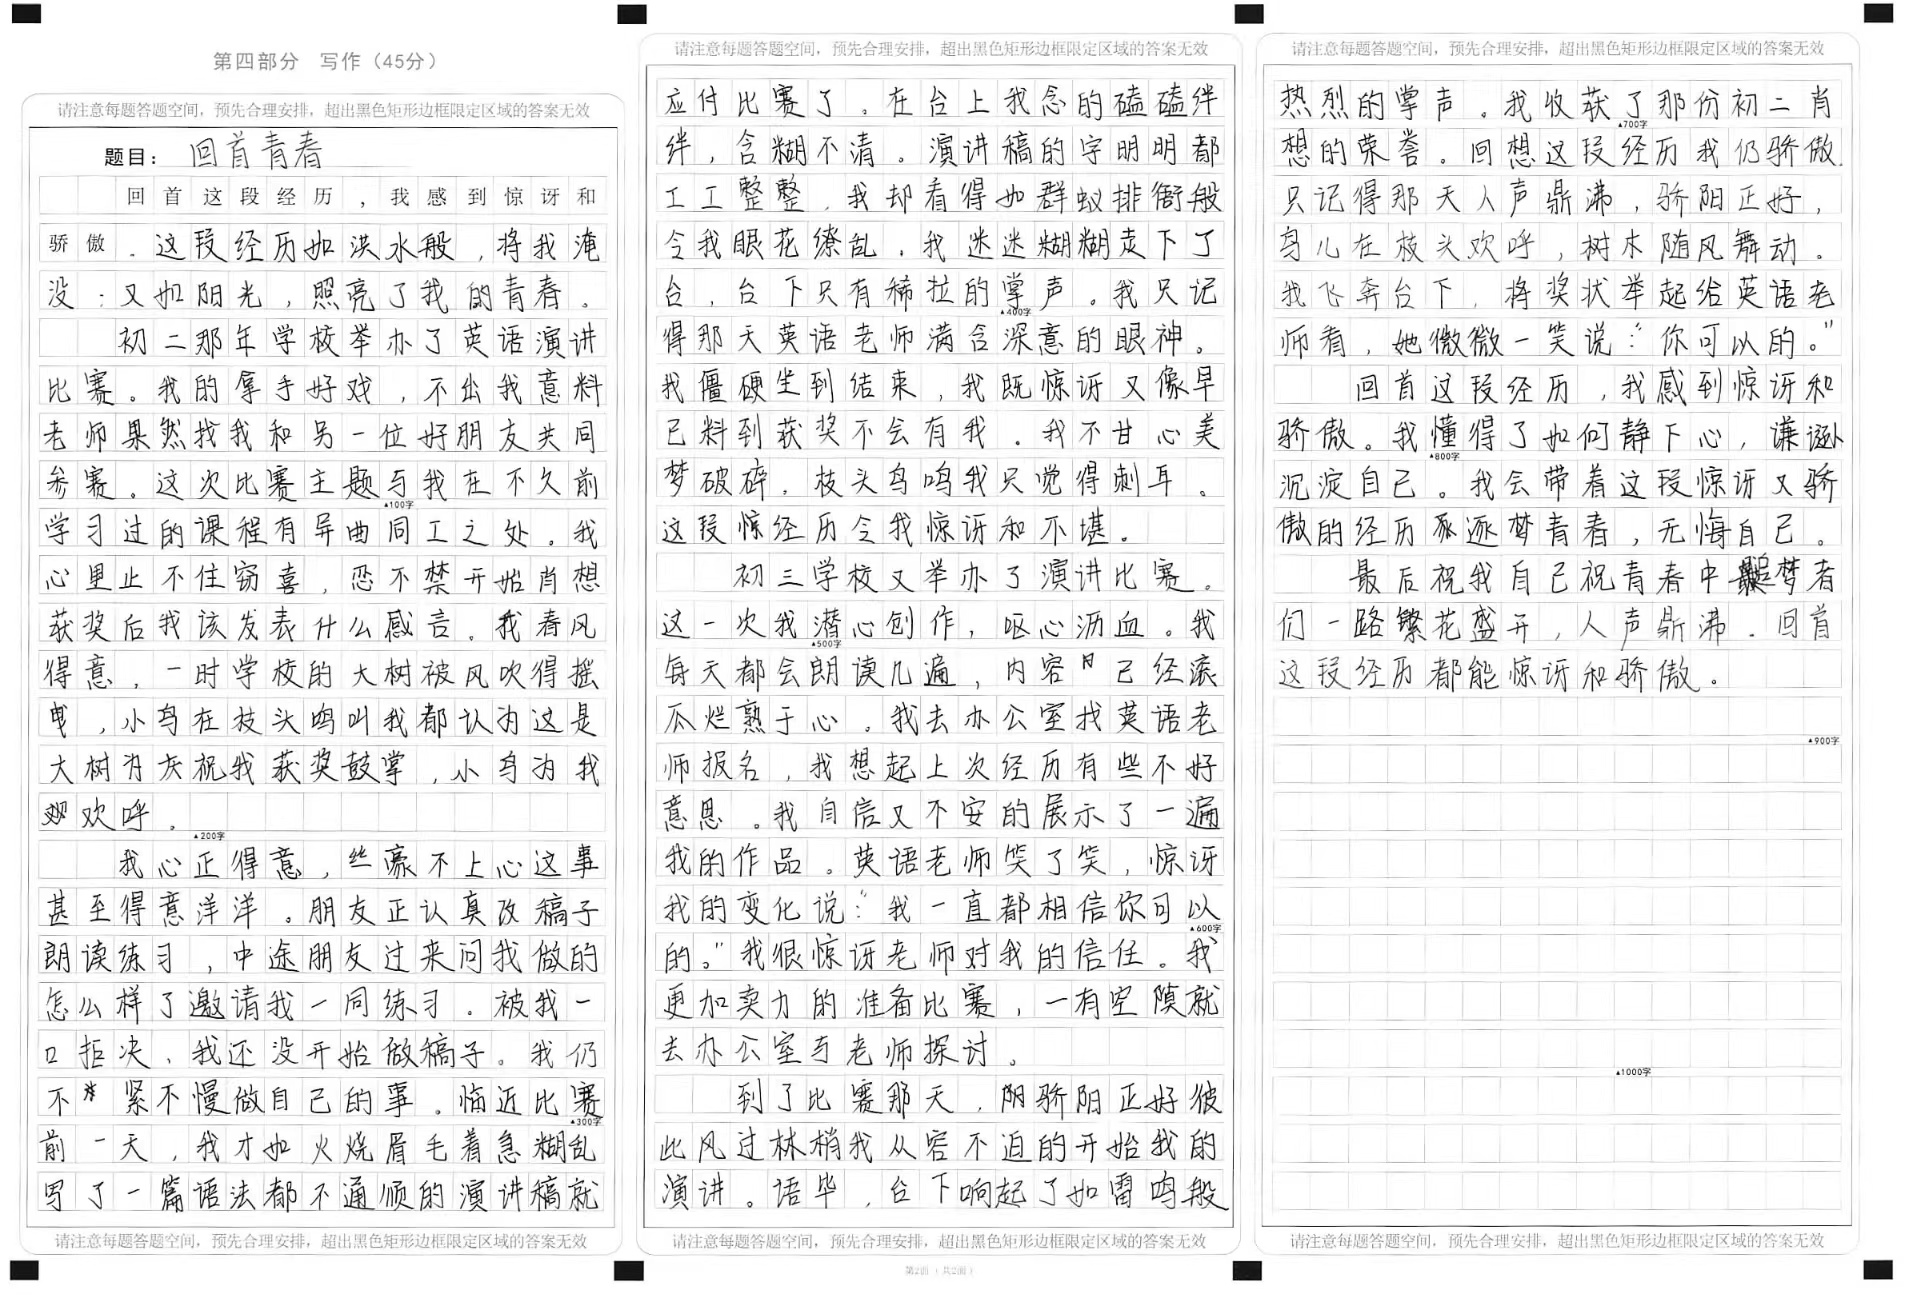 第四部分 写作（45分）
请注意每题答题空间，预先合理安排，超出黑色矩形边框限定区域的答案无效
题目： 回首青春
回首这段经历，我感到惊讶和
骄傲．这段经历如洪水般，将我淹
没；又如阳光，照亮了我的青春。
初二那年学校举办了英语演讲
比赛。我的拿手好戏，不出我意料
老师果然找我和另一位好朋友共同
参赛。这次比赛主题与我在不久前
▲100字
学习过的课程有异曲同工之处。我
心里止不住窃喜，忍不禁开始肖想
获奖后我该发表什么感言。我春风
得意，一时学校的大树被风吹得摇
曳，小鸟在枝头鸣叫我都认为这是
大树为庆祝我获奖鼓掌，小鸟为我
欢呼。
▲200字
我心正得意，丝豪不上心这事
甚至得意洋洋。朋友正认真改稿子
朗读练习，中途朋友过来问我做的
怎么样了邀请我一同练习．被我一
口拒决、我还没开始做稿子。我仍
不紧不慢做自己的事。临近比赛
▲300字
前一天，我才如火烧眉毛着急糊乱
写了一篇语法都不通顺的演讲稿就
请注意每题答题空间，预先合理安排，超出黑色矩形边框限定区域的答案无效
请注意每题答题空间，预先合理安排，超出黑色矩形边框限定区域的答案无效
应付比赛了。在台上我念的磕磕绊
绊，含糊不清。演讲稿的字明明都
工工整整，我却看得如群蚁排衙般
令我眼花缭乱．我迷迷糊糊走下了
台，台下只有稀拉的掌声。我只记
▲400字
得那天英语老师满含深意的眼神。
我僵硬坐到结束，我既惊讶又像早
已料到获奖不会有我．我不甘心美
梦破碎．枝头鸟鸣我只觉得刺耳。
这段惊经历令我惊讶和不堪。
初三学校又举办了演讲比赛。
这一次我潜心创作，呕心沥血。我
▲500字
每天都会朗读几遍，内容已经滚
瓜烂熟于心。我去办公室找英语老
师报名，我想起上次经历有些不好
意思。我自信又不安的展示了一遍
我的作品。英语老师笑了笑，惊讶
我的变化说：“我一直都相信你可以
▲600字
的。”我很惊讶老师对我的信任。我
更加卖力的准备比赛，一有空隙就
去办公室与老师探讨。
到了比赛那天，阴骄阳正好彼
此风过林梢我从容不迫的开始我的
演讲。语毕，台下响起了如雷鸣般
请注意每题答题空间，预先合理安排，超出黑色矩形边框限定区域的答案无效
第2面（共2面）
请注意每题答题空间，预先合理安排，超出黑色矩形边框限定区域的答案无效
热烈的掌声。我收获了那份初二肖
▲700字
想的荣誉。回想这段经历我仍骄傲．
只记得那天人声鼎沸，骄阳正好，
鸟儿在枝头欢呼，树木随风舞动。
我飞奔台下，将奖状举起给英语老
师看，她微微一笑说：“你可以的。”
回首这段经历，我感到惊讶和
骄傲。我懂得了如何静下心，谦逊
▲800字
沉淀自己。我会带着这段惊讶又骄
傲的经历逐梦青春，无悔自己。
最后祝我自己祝青春中追梦者
们一路繁花盛开，人声鼎沸．回首
这段经历都能惊讶和骄傲。
▲900字
▲1000字
请注意每题答题空间，预先合理安排，超出黑色矩形边框限定区域的答案无效